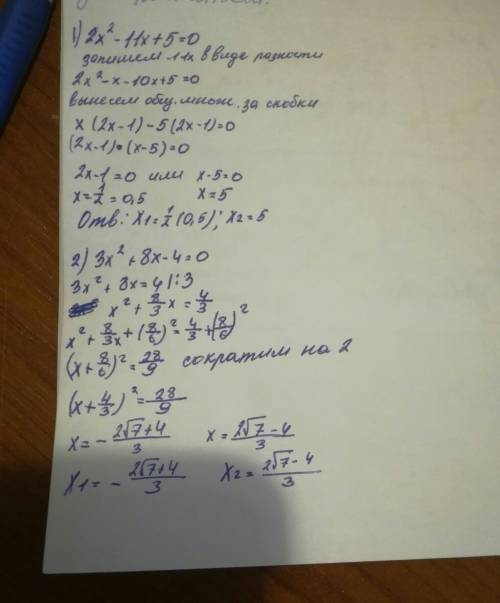 1) 2x² - 11x + 5 = 0
запишем -11x в виде разности
2x² - x - 10x + 5 = 0
вынесем общ. множ. за скобки
x (2x-1) - 5 (2x-1) = 0
(2x-1) • (x-5) = 0
2x-1 = 0 или x-5=0
x = 1/2 = 0,5 x = 5
Отв: X1 = 1/2 (0,5); X2 = 5
2) 3x² + 8x - 4 = 0
3x² + 8x = 4 | : 3
x² + 8/3 x = 4/3
x² + 8/3x + (8/6)² = 4/3 + (8/6)²
(x + 8/6)² = 28/9 сократим на 2
(x + 4/3)² = 28/9
x = - 2√7+4/3 x = 2√7-4/3
X1 = - 2√7+4/3 X2 = 2√7-4/3